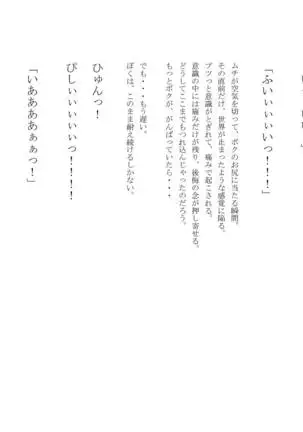 「ふいぃぃぃいっ！！！」
ムチが空気を切って、ボクのお尻に当たる瞬間。
その直前だけ、世界が止まったような感覚に陥る。
プツっと意識がとぎれて、痛みで起こされる。
意識の中には痛みだけが残り、後悔の念が押し寄せる。
どうしてここまでもつれ込んじゃったのだろう。
もっとボクが、がんばっていたら・・・
でも・・・もう遅い。
ぼくは、このまま耐え続けるしかない。
ひゅんっ！
ぴしぃぃぃぃぃっ！！！！
「いああああぁぁっ！」